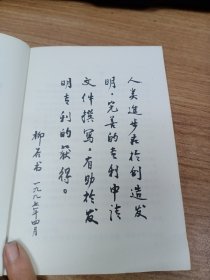 人类进步在於创造发
明，完善的专利申请
文件撰写，有助於发
明专利的获得。
柳谷书
一九九七年四月